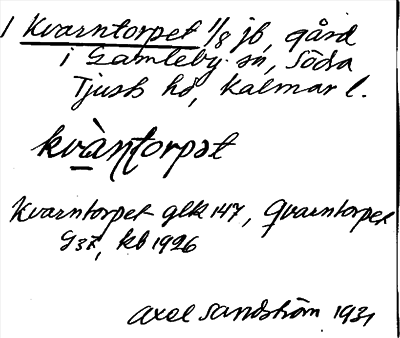 1 Kvarntorpet 1/8 jb, gård
i Gamleby sn, Södra
Tjusts hd, Kalmar l.
kvàṇtorpət
Kvarntorpet glk 147, Qvarntorpet
GSK, kb 1926
Axel Sandström 1931